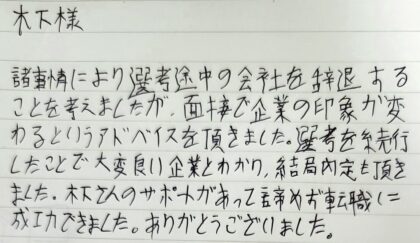 木下様
諸事情により選考途中の会社を辞退する
ことを考えましたが、面接で企業の印象が変
わるというアドバイスを頂きました。選考を続行
したことで大変良い企業とわかり、結局内定も頂き
ました。木下さんのサポートがあって諦めず転職に
成功できました。ありがとうございました。